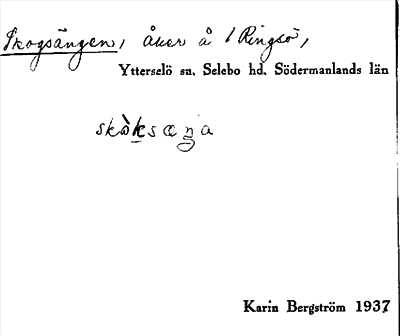 Skogsängen, åker å / Ringsö,
Ytterselö sn. Selebo hd. Södermanlands län
Karin Bergström 1937